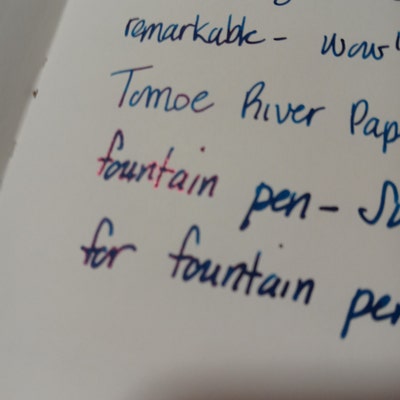 remarkable - wow!
Tomoe River Pap
fountain pen -
for fountain pe